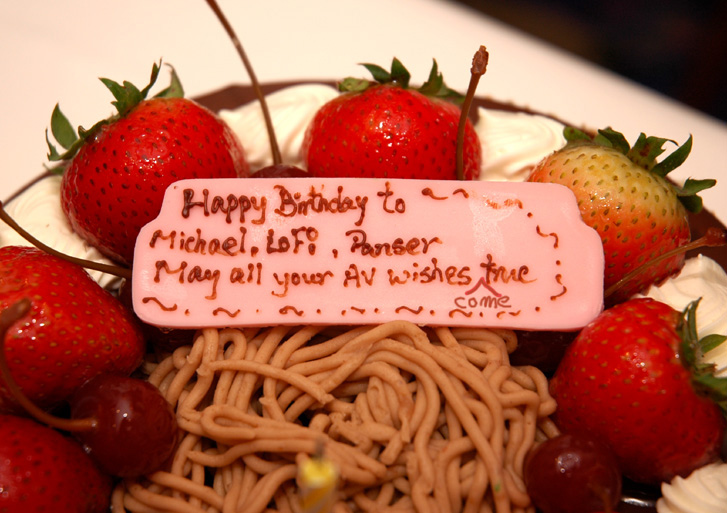 Happy Birthday to
Michael, LoFi, Panser
May all your AV wishes come true